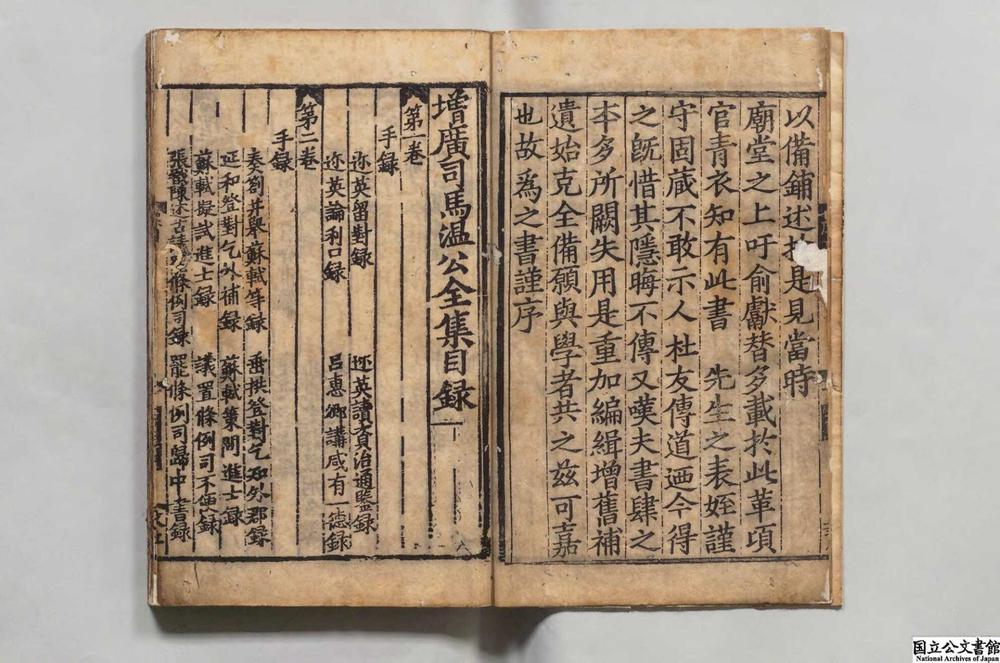 以備鋪述於是見當時
廟堂之上吁俞獻替多載於此革項
官青衣知有此書　先生之表姪謹
守固藏不敢示人杜友傳道廼今得
之旣惜其隱晦不傳又嘆夫書肆之
本多所闕失用是重加編緝增舊補
遺始克全備願與學者共之茲可嘉
也故爲之書謹序
增廣司馬温公全集目録
第一卷
手録
迩英留對録　迩英讀資治通鑑録
迩英論利口録　呂惠卿講咸有一德録
第二卷
手録
奏劄并舉蘇軾等録　垂拱登對乞知外郡録
延和登對乞外補録　蘇軾策問進士録
蘇軾擬試進士録　議置條例司不便録
張陳述古條例司録　罷條例司歸中書録
国立公文書館
National Archives of Japan